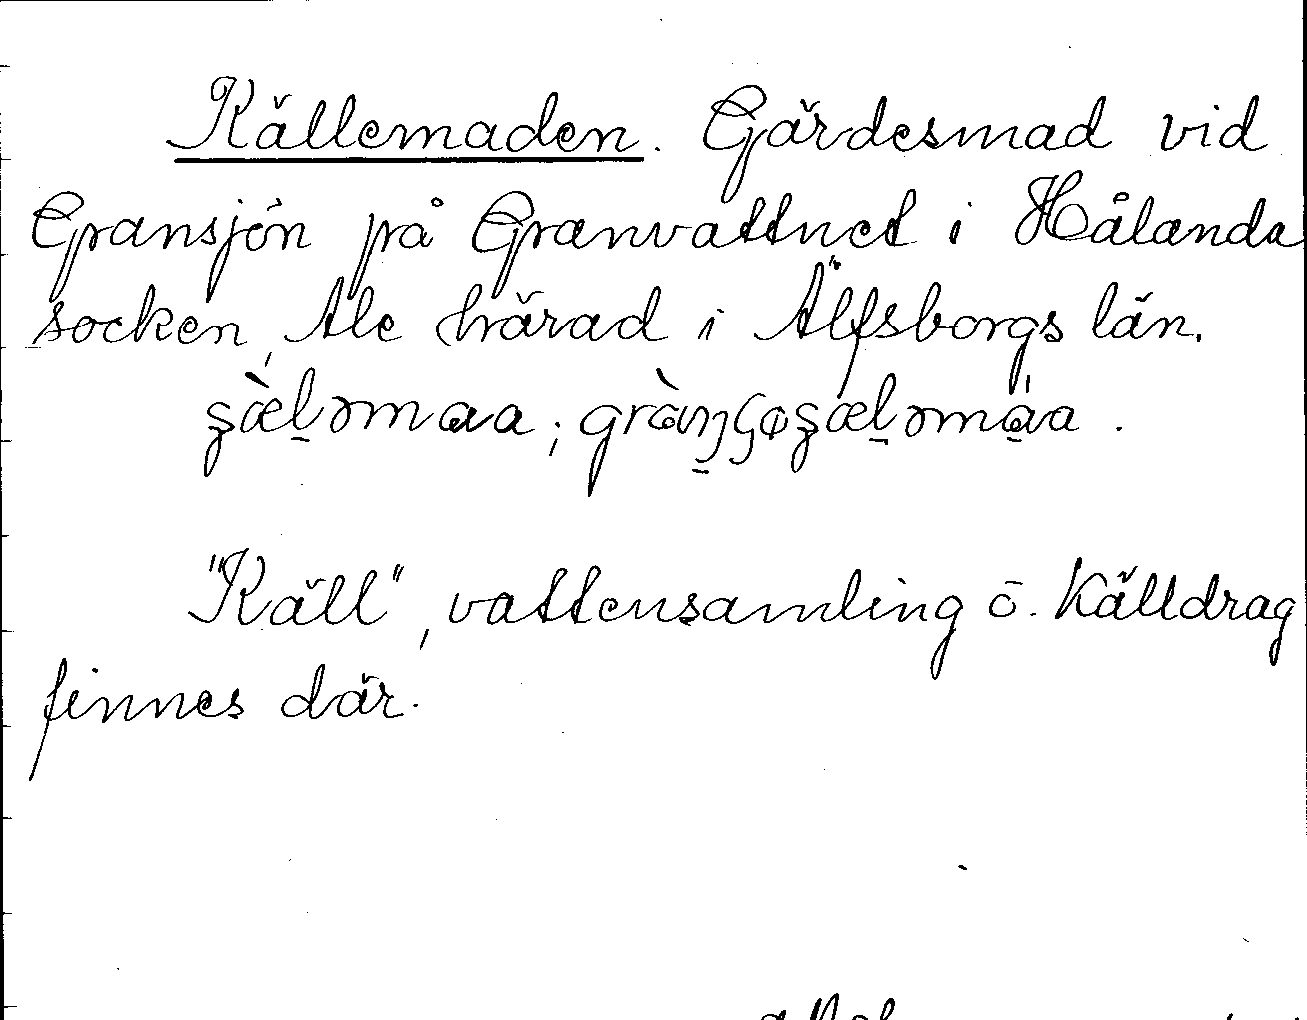 Källemaden. Gärdesmad vid
Gransjön på Granvattnet i Hålanda
socken, Ale härad i Älfsborgs län.
"Käll", vattensamling o. källdrag
finnes där.